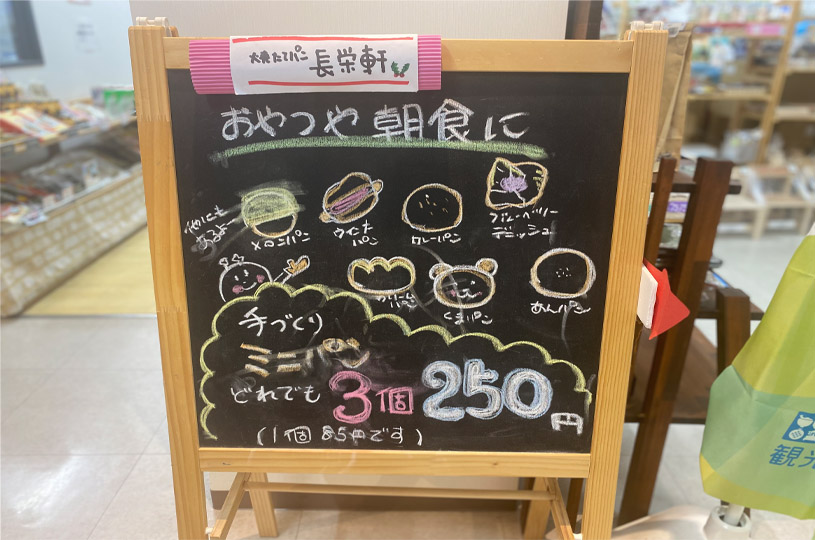 焼たてパン 長栄軒
おやつや朝食に
他にも
あるよ
メロンパン
ウインナ
パン
カレーパン
ブルーベリー
デニッシュ
クリーム
パン
くまパン
あんパン
手づくり
ミニパン
どれでも 3個 250円
(1個 85円です)
観光